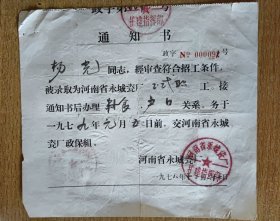 通知书
政字 №000091号
杨光同志，经审查符合招工条件，
被录取为河南省永城瓷厂正式职工，接
通知书后办理粮食、户口关系，务于
一九七九年元月五日前，交河南省永城
瓷厂政保组。
河南省永城瓷厂
一九七八年